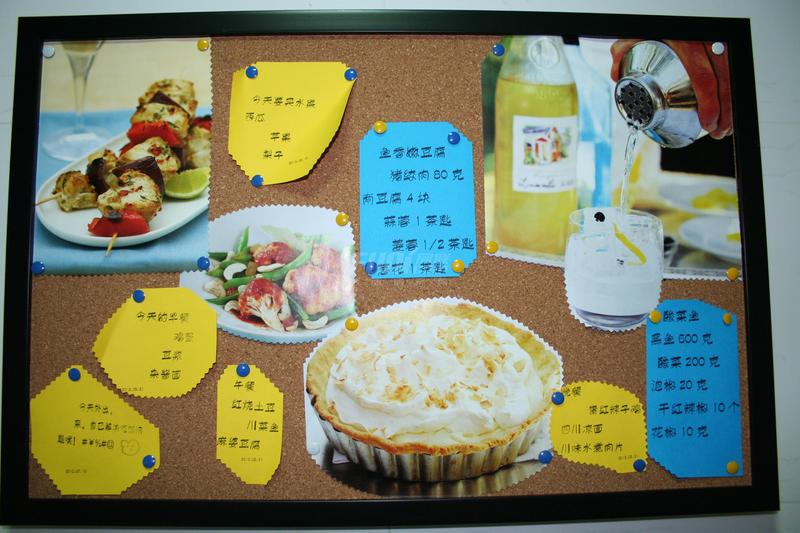 今天要买水果
西瓜
苹果
梨子
鱼香嫩豆腐
猪绞肉 80 克
南豆腐 4 块
蒜蓉 1 茶匙
姜蓉 1/2 茶匙
葱花 1 茶匙
今天的早餐
鸡蛋
豆浆
杂酱面
今天外出,
午餐
红烧土豆
川菜鱼
麻婆豆腐
晚餐
辣子鸡
四川凉面
川味水煮肉片
酸菜鱼
黑鱼 600 克
酸菜 200 克
泡椒 20 克
干红辣椒 10 个
花椒 10 克